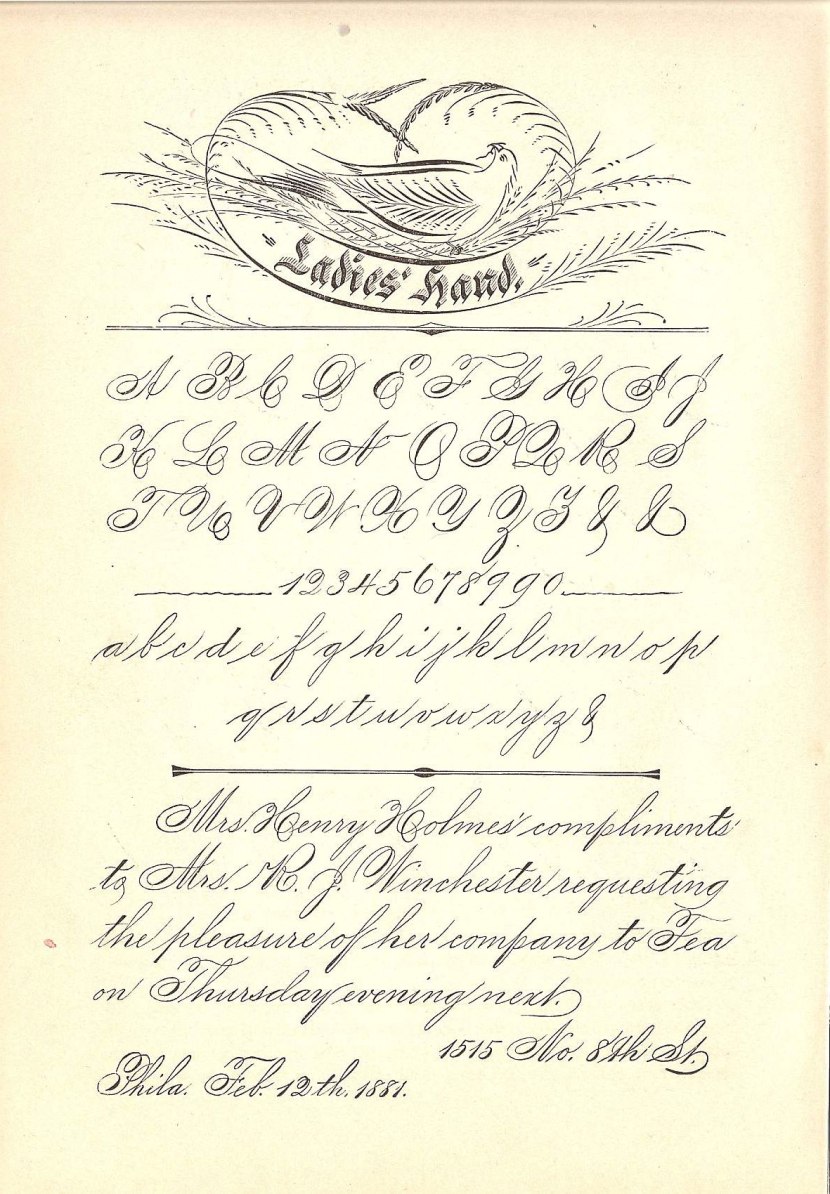 "Ladies' Hand."
A B C D E F G H I J
K L M N O P Q R S
T U V W X Y Z Z & &
1234567899 0
a b c d e f g h i j k l m n o p
q r s t u v w x y z &
Mrs. Henry Holmes' compliments
to Mrs. R. J. Winchester requesting
the pleasure of her company to Tea
on Thursday evening next.
1515 No. 8th St.
Phila. Feb. 12th. 1881.